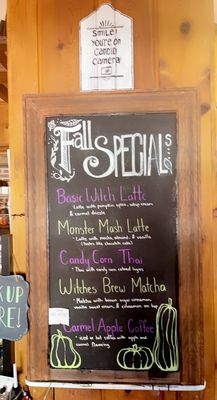 SMILE!
you're on
CANDID
CAMERA
Fall SPECIALS
Basic Witch Latte
Latte with pumpkin spice, whip cream
& caramel drizzle
Monster Mash Latte
Latte with mocha, almond, & vanilla
(tastes like chocolate cake)
Candy Corn Thai
Thai with candy corn colored layers
Witches Brew Matcha
Matcha with brown sugar cinnamon,
vanilla sweet cream, & cinnamon on top
Carmel Apple Coffee
iced or hot coffee with apple and
carmel flavoring
K UP
RE!